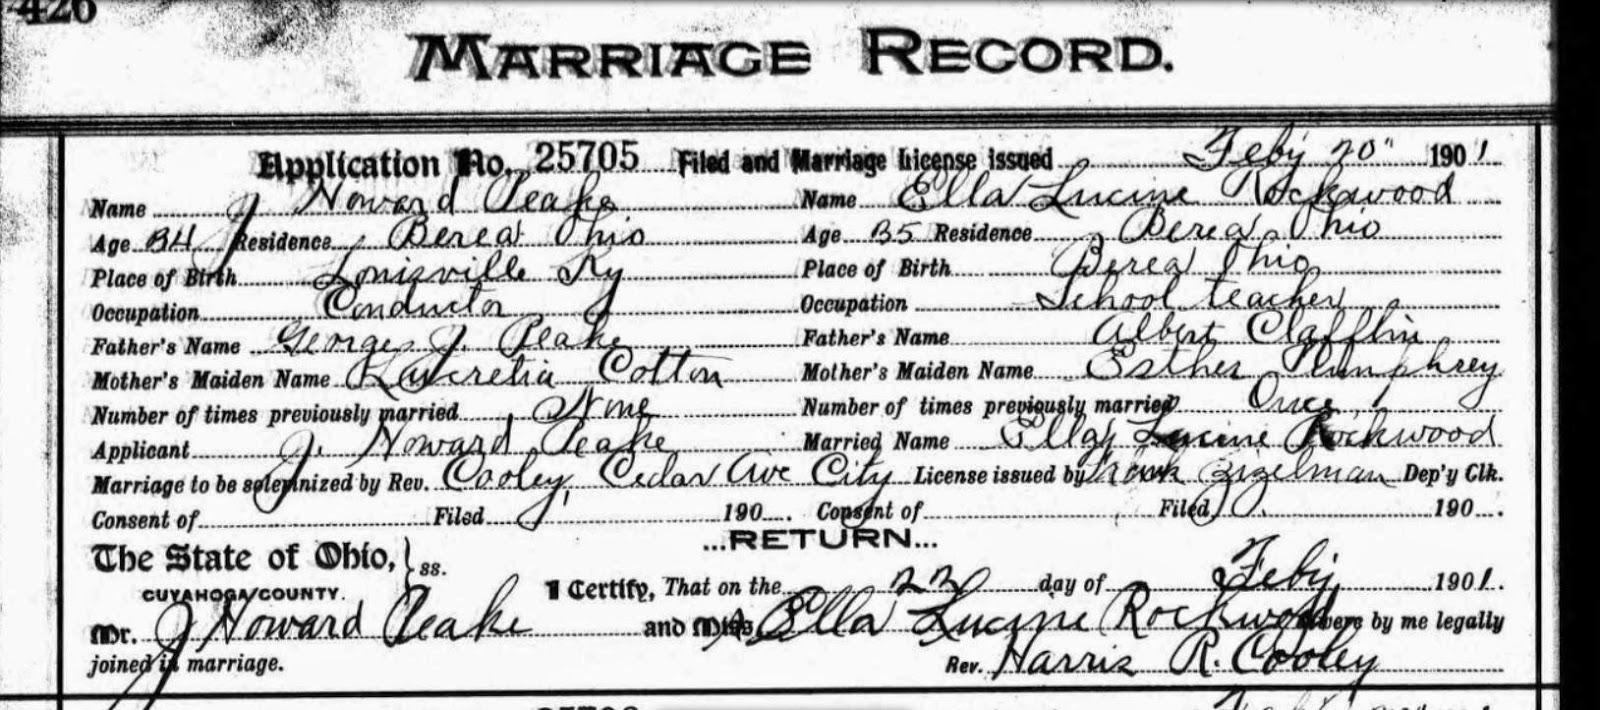 426
MARRIAGE RECORD.
Application No. 25705 Filed and Marriage License issued Feby 20" 1901
Name J Howard Peake Name Ella Lucine Rockwood
Age 34 Residence Berea Ohio Age 35 Residence Berea Ohio
Place of Birth Louisville Ky Place of Birth Berea Ohio
Occupation Conductor Occupation School teacher
Father's Name George J. Peake Father's Name Albert Clafflin
Mother's Maiden Name Lucretia Cotton Mother's Maiden Name Esther Pumphrey
Number of times previously married None Number of times previously married Once
Applicant J. Howard Peake Married Name Ella Lucine Rockwood
Marriage to be solemnized by Rev. Cooley, Cedar Ave City License issued by Frank Zizelman Dep'y Clk.
Consent of Filed 190 . Consent of Filed 190 .
...RETURN...
The State of Ohio, } ss.
CUYAHOGA COUNTY.
I Certify, That on the 22 day of Feby 1901.
Mr. J Howard Peake and Mrs Ella Lucine Rockwood were by me legally
joined in marriage. Rev. Harris R. Cooley